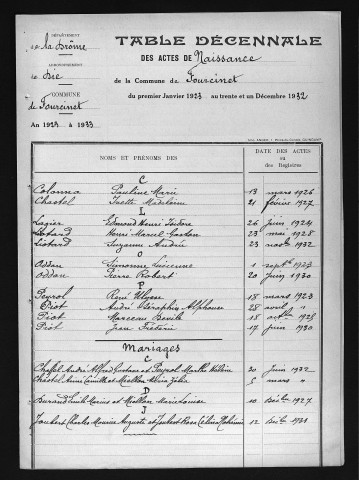 DÉPARTEMENT
de la Drôme
ARRONDISSEMENT
de Die
COMMUNE
de Fourcinet
An 1923 à 1933
TABLE DÉCENNALE
DES ACTES DE Naissance
de la Commune de Fourcinet
du premier Janvier 1923 au trente et un Décembre 1932
NOMS ET PRÉNOMS DES
DATE DES ACTES
ou
des Registres
C
Colonna Pauline Marie 13 mars 1926
Chastel Ivette Madeleine 21 février 1927
L
Lagier Edmond Henri Isidore 26 juin 1924
Liotard Henri Marcel Gaston 23 mai 1928
Liotard Suzanne Andrée 23 nov 1932
O
Oddon Simonne 1 sept 1923
Oddon Pierre Robert 20 juin 1930
P
Peyrol René Ulysse 18 mars 1923
Piot André Séraphin Alphonse 28 avril
Piot Marceau 18 1925
Piot Jean Frédéric 17 juin 1930
Mariages
C
Chastel André Alfred et Peyrol Marthe 30 juin 1932
Chastel et 5 mars
D
Durand Emile Marius et Marie Louise 10 1927
J
Joubert Charles Maurice Auguste et Joubert Rose 12